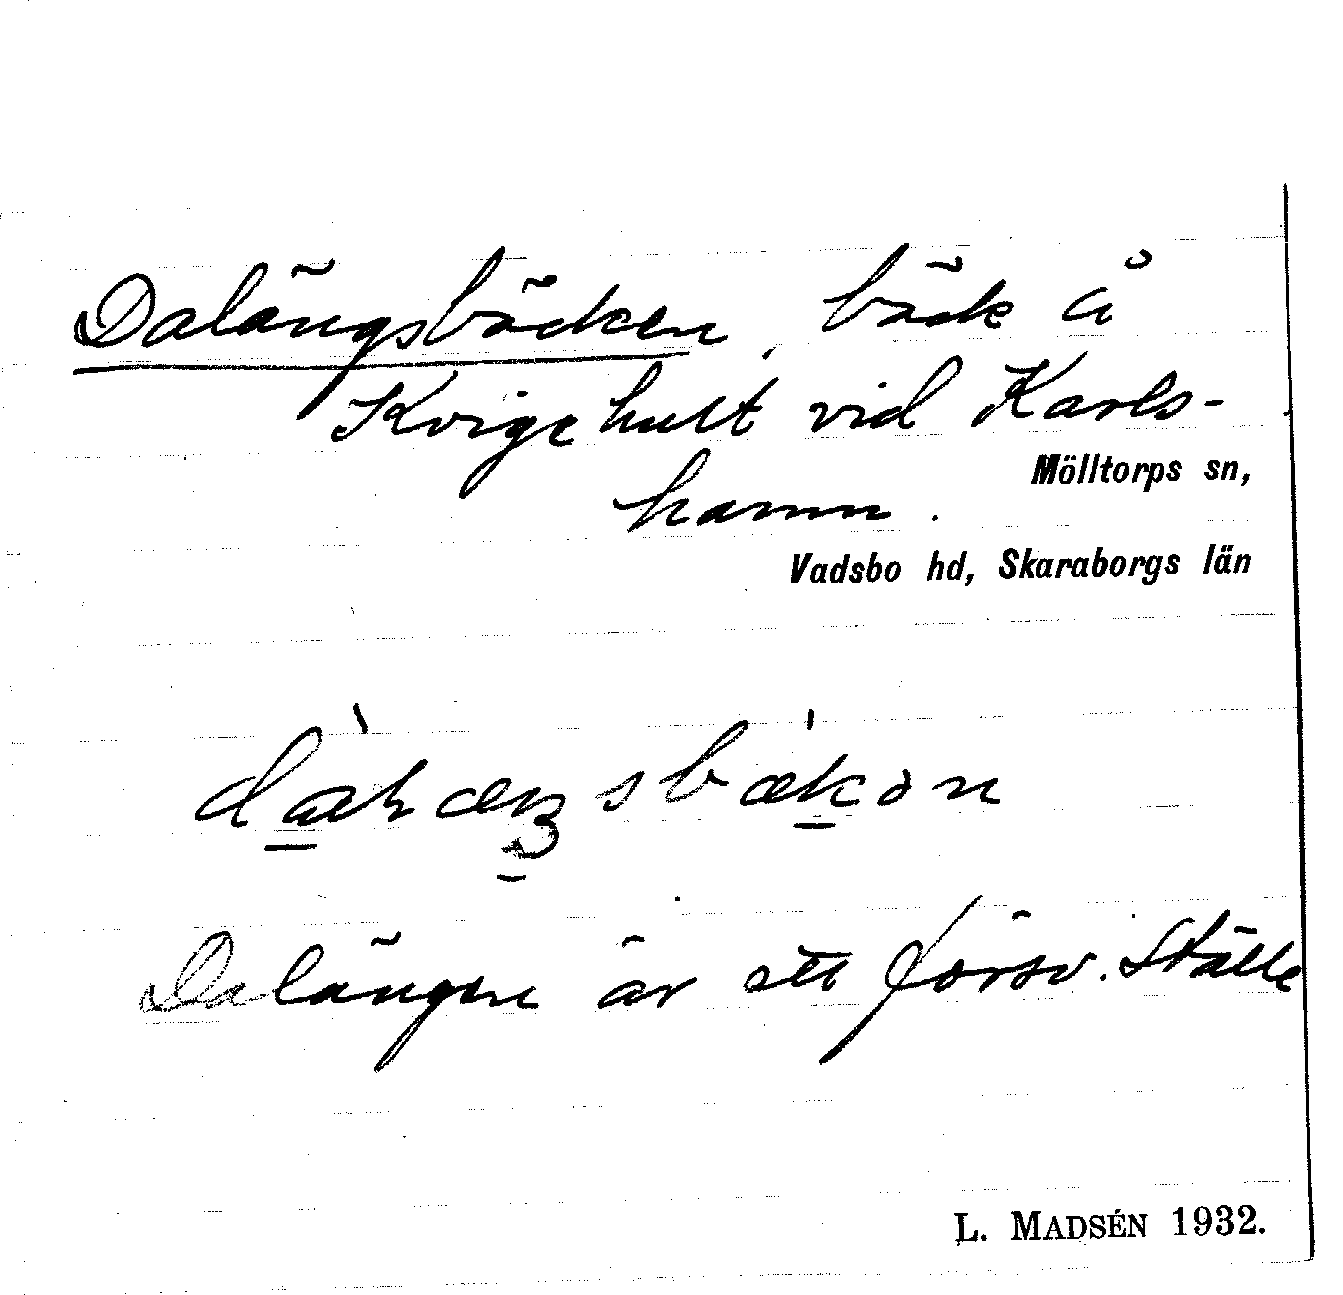 Dalängsbäcken, bäck å
Kvigehult vid Karls-
Mölltorps sn,
hamn.
Vadsbo hd, Skaraborgs län
Dalängen är ett försv. ställe
L. MADSÉN 1932.